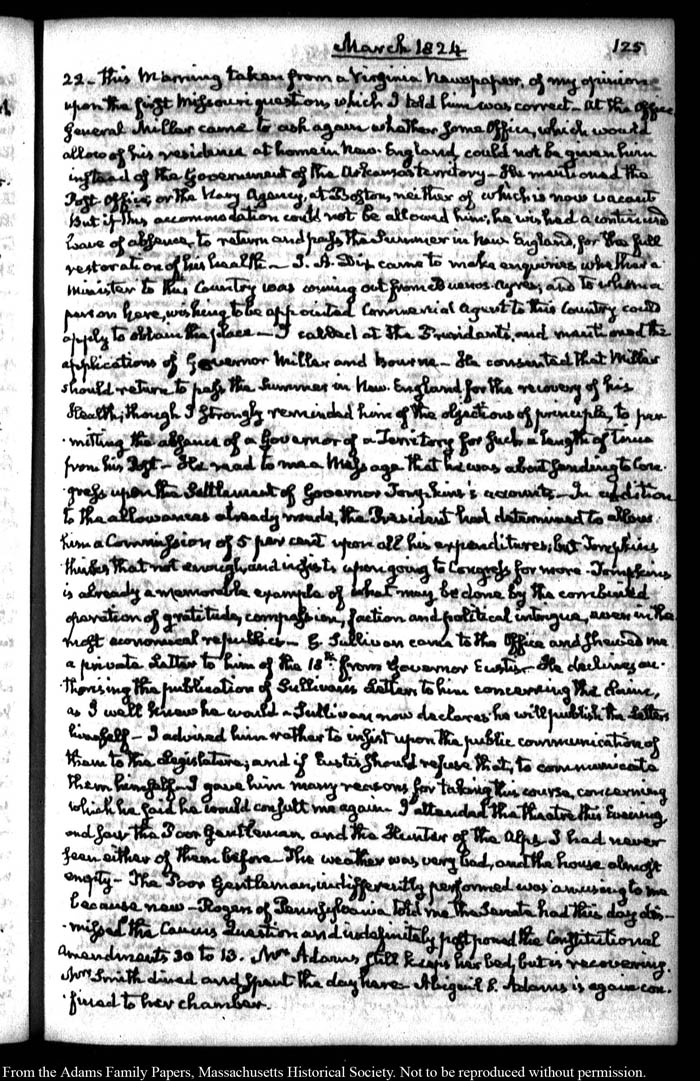 March 1824
125
22- This Morning taken from a Virginia Newspaper, of my opinion
upon the first Missouri question, which I told him was correct- At the Office
General Miller came to ask again whether some Office, which would
allow of his residence at home in New-England, could not be given him
instead of the Government of the Arkansas territory- He mentioned the
Post-Office, or the Navy Agency, at Boston, neither of which is now vacant
But if this accommodation could not be allowed him, he wished a continued
leave of absence, to return and pass the Summer in New England, for the full
restoration of his health- J. A. Dix came to make enquiries whether a
Minister to this Country was coming out from Buenos-Ayres, and to whom a
person here, wishing to be appointed Commercial Agent to this Country could
apply to obtain the place- I called at the Presidents, and mentioned the
applications of Governor Miller and Bourne- He consented that Miller
should return to pass the Summer in New-England for the recovery of his
Health; though I strongly reminded him of the objections of principle, to per
-mitting the absence of a Governor of a Territory for such a length of time
from his Post- He read to me a Message that he was about sending to Con-
gress upon the Settlement of Governor Tompkins's accounts- In addition
to the allowances already made, the President had determined to allow
him a Commission of 5 per cent upon all his expenditures; but Tompkins
thinks that not enough, and insists upon going to Congress for more- Tompkins
is already a memorable example of what may be done by the combined
operation of gratitude, compassion, faction and political intrigue, even in the
most economical republics- G. Sullivan came to the Office and shewed me
a private Letter to him of the 18th from Governor Eustis- He declines au-
thorising the publication of Sullivan's Letters to him concerning the claim,
as I well knew he would- Sullivan now declares he will publish the Letters
himself- I advised him rather to insist upon the public communication of
them to the Legislature; and if Eustis should refuse that, to communicate
them himself- I gave him many reasons for taking this course, concerning
which he said he would consult me again- I attended the theatre this Evening
and saw the Poor Gentleman, and the Hunter of the Alps- I had never
seen either of them before- The weather was very bad, and the house almost
empty- The Poor Gentleman, indifferently performed was amusing to me
because new- Rogers of Pennsylvania told me the Senate had this day dis-
-missed the Caucus Question and indefinitely postponed the Constitutional
Amendments 30 to 13. Mrs Adams still keeps her bed, but is recovering.
Mrs Smith dined and spent the day here- Abigail S. Adams is again con-
-fined to her chamber.
From the Adams Family Papers, Massachusetts Historical Society. Not to be reproduced without permission.